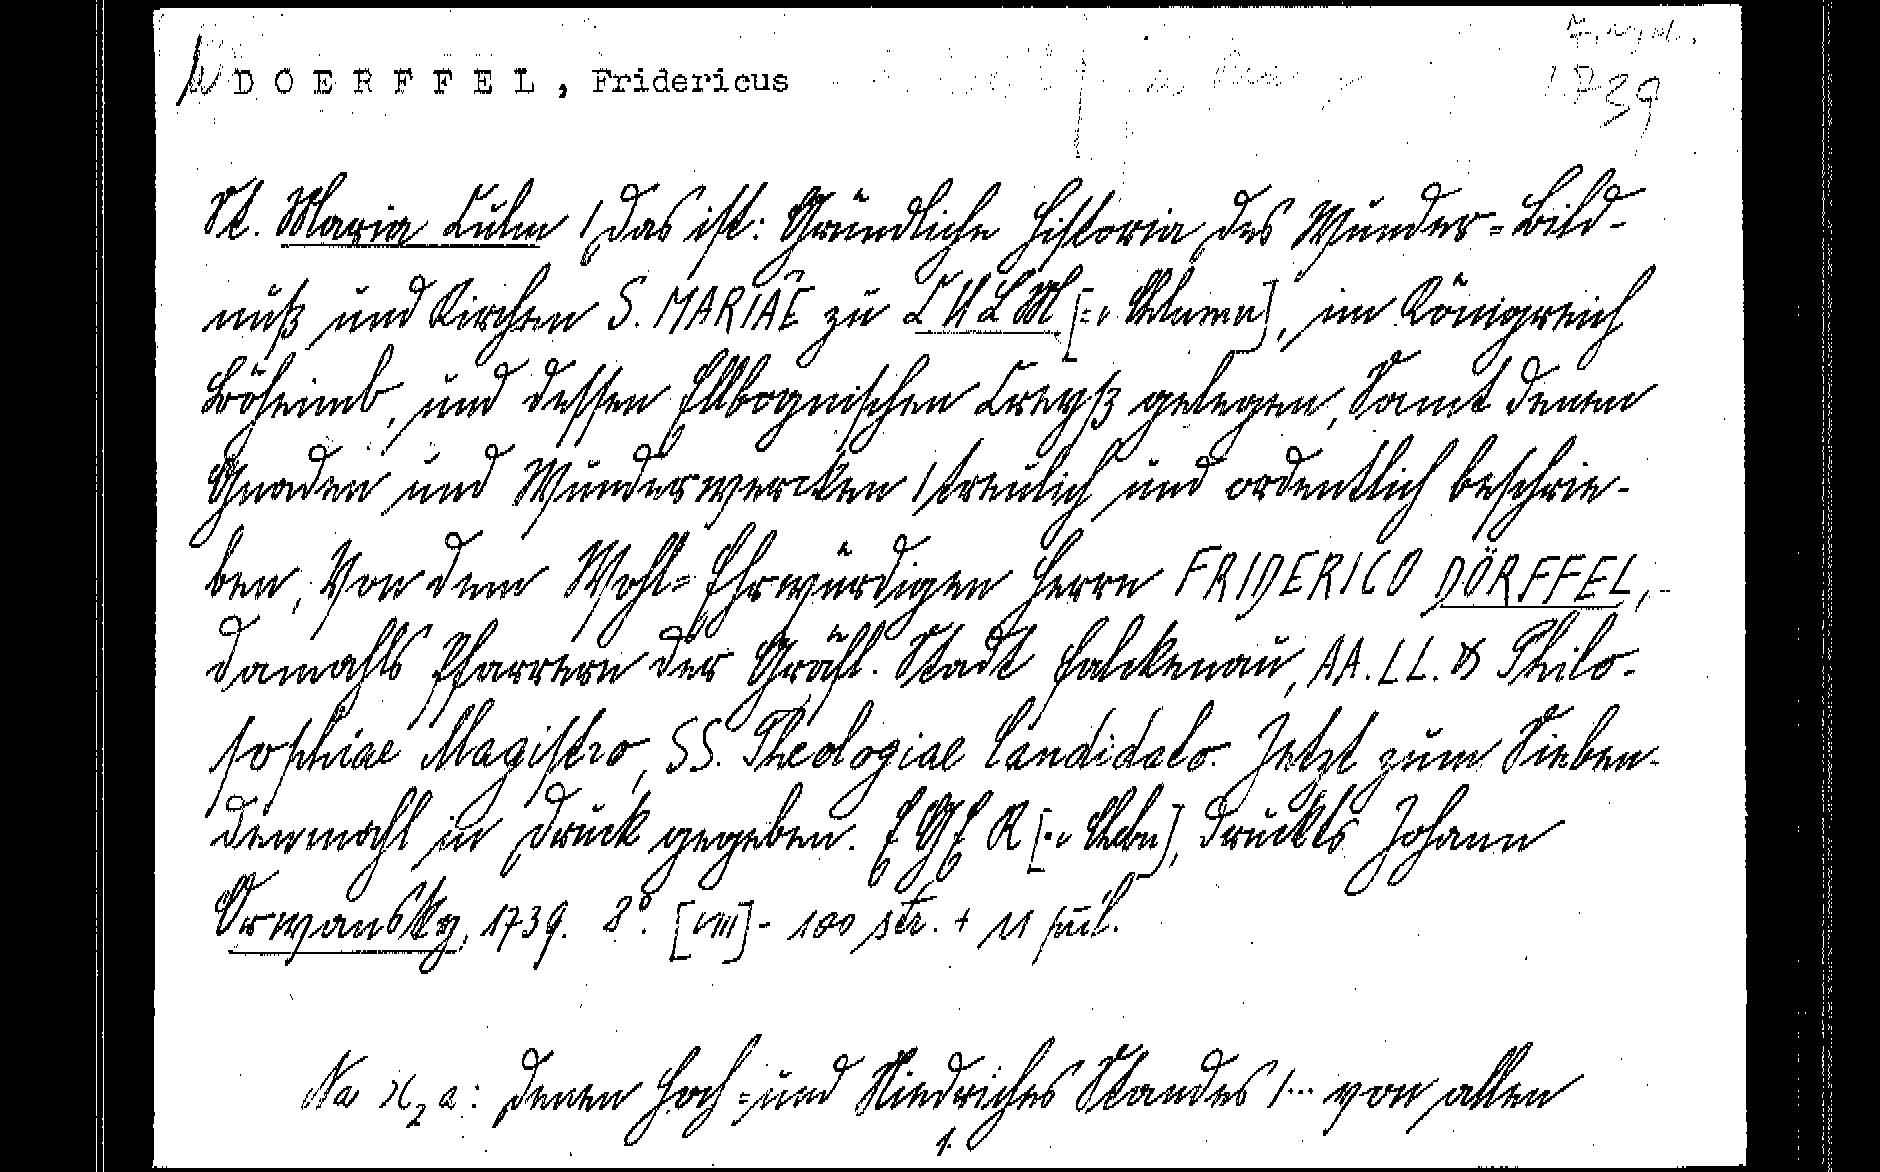 7. vyd.
DOERFFEL, Fridericus
1739
St. Maria Culm / Das ist: Gründliche Historia des Wunder=Bild-
nuß und Kirchen S. MARIAE zu CULM [= Chlumu], im Königreich
Böheimb, und dessen Ellbognischen Creyß gelegen, Samt denen
Gnaden und Wunderwercken / treulich und ordentlich beschrie-
ben, Von dem Wohl=Ehrwürdigen Herrn FRIDERICO DÖRFFEL,
damahls Pfarrern der Gräfl. Stadt Falckenau, AA. LL. & Philo-
sophiae Magistro, SS. Theologiae Candidato. Jetzt zum Sieben-
denmahl in Druck gegeben. EGER [= Cheb], druckts Johann
Orwansky, 1739. 8° [VIII] - 100 str. + 11 příl.
Na X2a: Denen Hoch=und Niedriches Standes /... von allen
1.